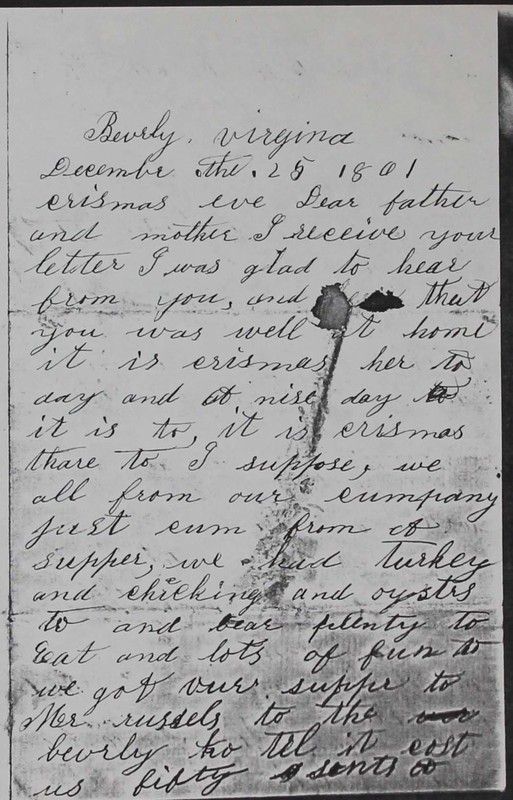 Beverly, virgina
December the. 25 1861
crismas eve Dear father
and mother I receive your
letter I was glad to hear
from you, and that
you was well at home
it is crismas her to
day and a nise day
it is to, it is crismas
thare to I suppose, we
all from our cumpany
just cum from a
supper, we had turkey
and chicking and oystrs
to and bear plenty to
Eat and lots of fun to
we got vuer suppr to
Mr russels to the
beverly ho tel it cost
us fifty sents a